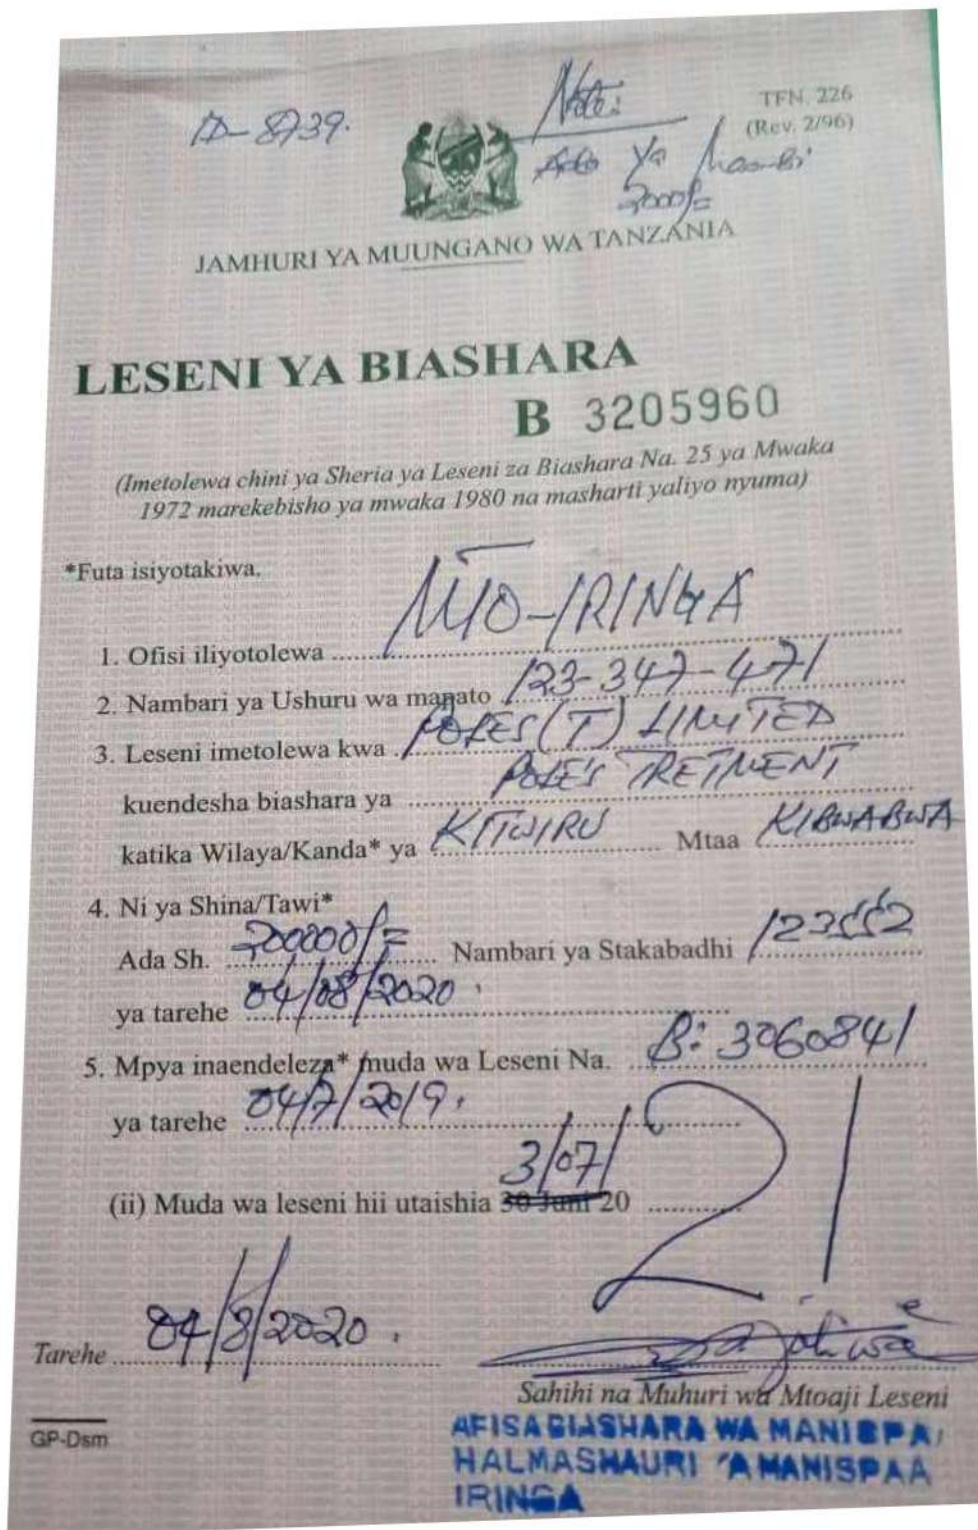 D-8739.
Note:
TFN. 226
(Rev. 2/96)
Ada Ya Maombi
2000/=
JAMHURI YA MUUNGANO WA TANZANIA
LESENI YA BIASHARA
B 3205960
(Imetolewa chini ya Sheria ya Leseni za Biashara Na. 25 ya Mwaka
1972 marekebisho ya mwaka 1980 na masharti yaliyo nyuma)
*Futa isiyotakiwa.
1. Ofisi iliyotolewa -IRINGA
2. Nambari ya Ushuru wa mapato 123-347-471
3. Leseni imetolewa kwa POLES (T) LIMITED
kuendesha biashara ya POLES TRETMENT
katika Wilaya/Kanda* ya KITWIRU Mtaa KIBWABWA
4. Ni ya Shina/Tawi*
Ada Sh. 200000/= Nambari ya Stakabadhi
ya tarehe 04/08/2020.
5. Mpya inaendeleza* muda wa Leseni Na. B: 3060841
ya tarehe 04/7/2019.
(ii) Muda wa leseni hii utaishia 3/07/ 30 Juni 20 21
Tarehe 04/8/2020.
Sahihi na Muhuri wa Mtoaji Leseni
GP-Dsm
AFISA BIASHARA WA MANISPA
HALMASHAURI 'A MANISPAA
IRINGA